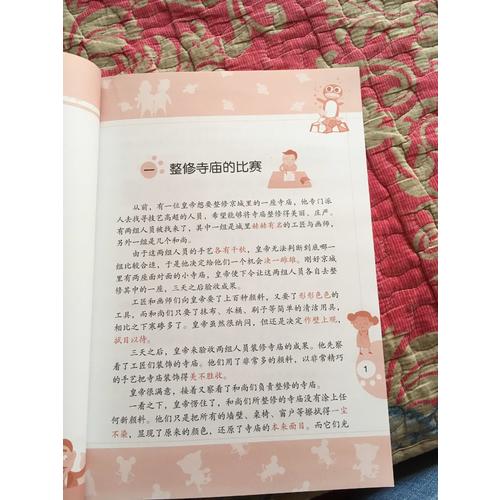 一 整修寺庙的比赛
从前，有一位皇帝想要整修京城里的一座寺庙，他专门派
人去找寻技艺高超的人员，希望能够将寺庙整修得美丽、庄严。
有两组人员被找来了，其中一组是城里赫赫有名的工匠与画师，
另外一组是几个和尚。
由于这两组人员的手艺各有千秋，皇帝无法判断到底哪一
组比较合适，于是他决定给他们一个机会决一雌雄。刚好京城
里有两座面对面的小寺庙，皇帝便下令让这两组人员各自去整
修其中的一座，三天之后验收成果。
工匠和画师们向皇帝要了上百种颜料，又要了形形色色的
工具，而和尚们只要了抹布、水桶、刷子等简单的清洁用具，
相比之下寒碜多了。皇帝虽然很纳闷，但还是决定作壁上观，
拭目以待。
三天之后，皇帝来验收两组人员装修寺庙的成果。他先察
看了工匠们装饰的寺庙。他们用了非常多的颜料，以非常精巧
的手艺把寺庙装饰得美不胜收。
皇帝很满意，接着又察看了和尚们负责整修的寺庙。
一看之下，皇帝愣住了，和尚们所整修的寺庙没有涂上任
何新颜料。他们只是把所有的墙壁、桌椅、窗户等擦拭得一尘
不染，显现了原来的颜色，还原了寺庙的本来面目。而它们光
1